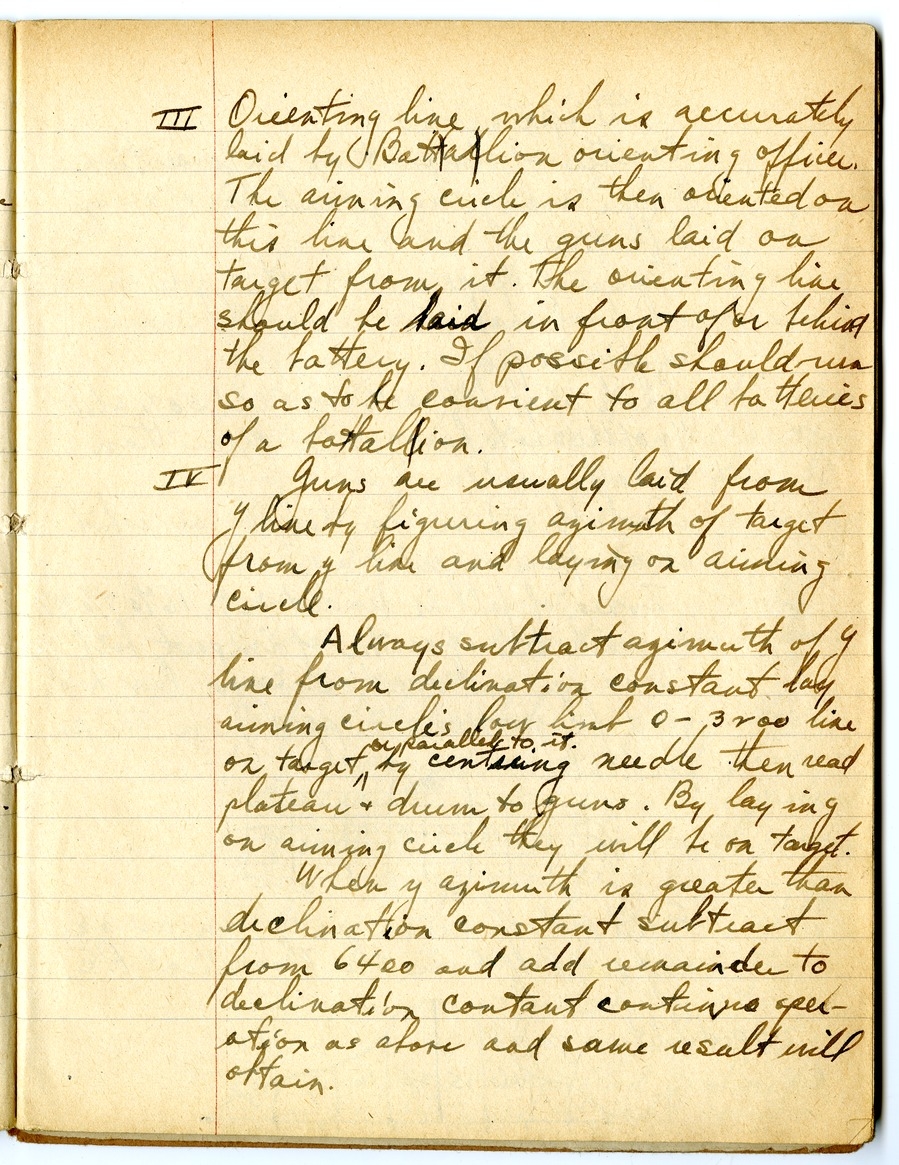 III Orienting line which is accurately
laid by Battallion orienting officer.
The aiming circle is then oriented on
this line and the guns laid on
target from it. The orienting line
should be laid in front of or behind
the battery. If possible should run
so as to be convient to all batteries
of a battallion.
IV Guns are usually laid from
y line by figuring azimuth of target
from y line and laying on aiming
circle.
Always subtract azimuth of y
line from declination constant lay
aiming circle's low limb 0-3200 line
or parallel to it.
on target, by centering needle then read
plateau + drum to guns. By laying
on aiming circle they will be on target.
When y azimuth is greater than
declination constant subtract
from 6400 and add remainder to
declination contant continue oper-
ation as above and same result will
obtain.